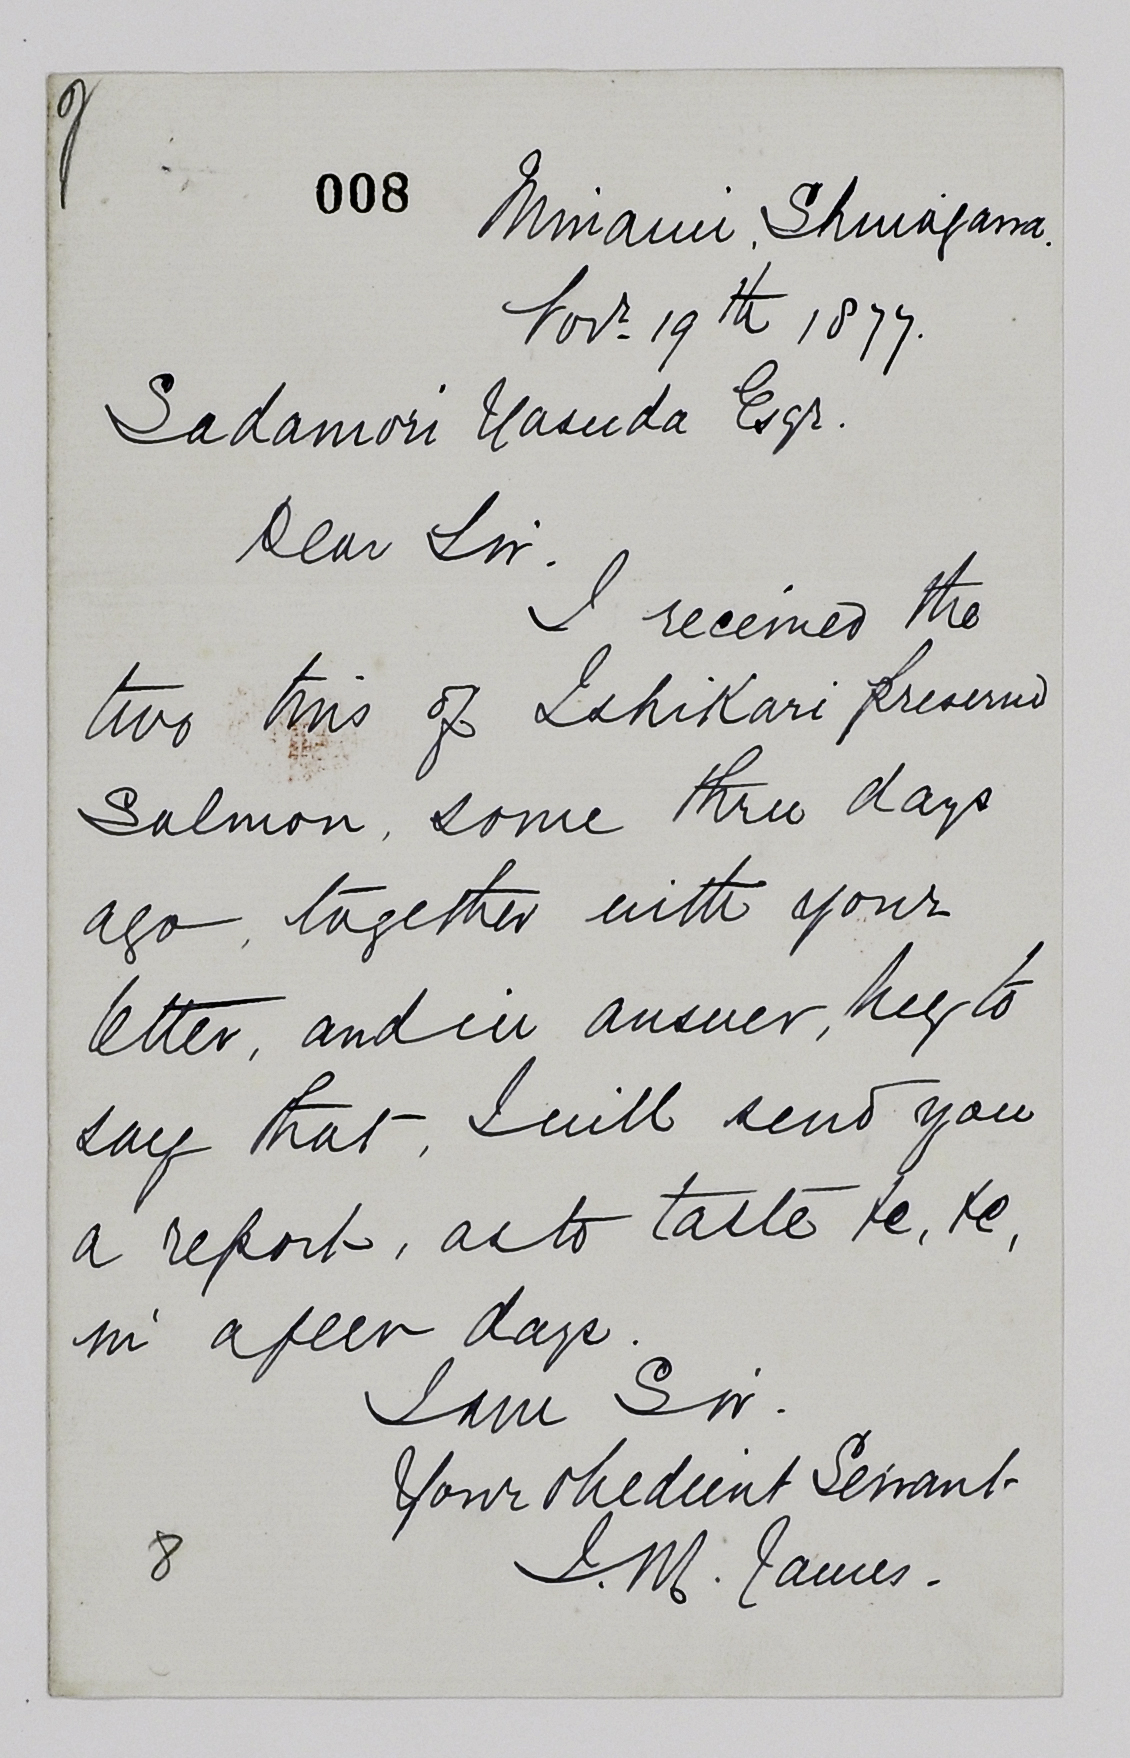 008
Minami, Shinagawa.
Novr 19th 1877.
Sadamori Yasuda Esqr.
Dear Sir.
I received the
two tins of Ishikari preserved
Salmon, some three days
ago, together with your
letter, and in answer, beg to
say that, I will send you
a report, as to taste &c, &c,
in a few days.
I am Sir.
Your obedient Servant
J. M. James.
8